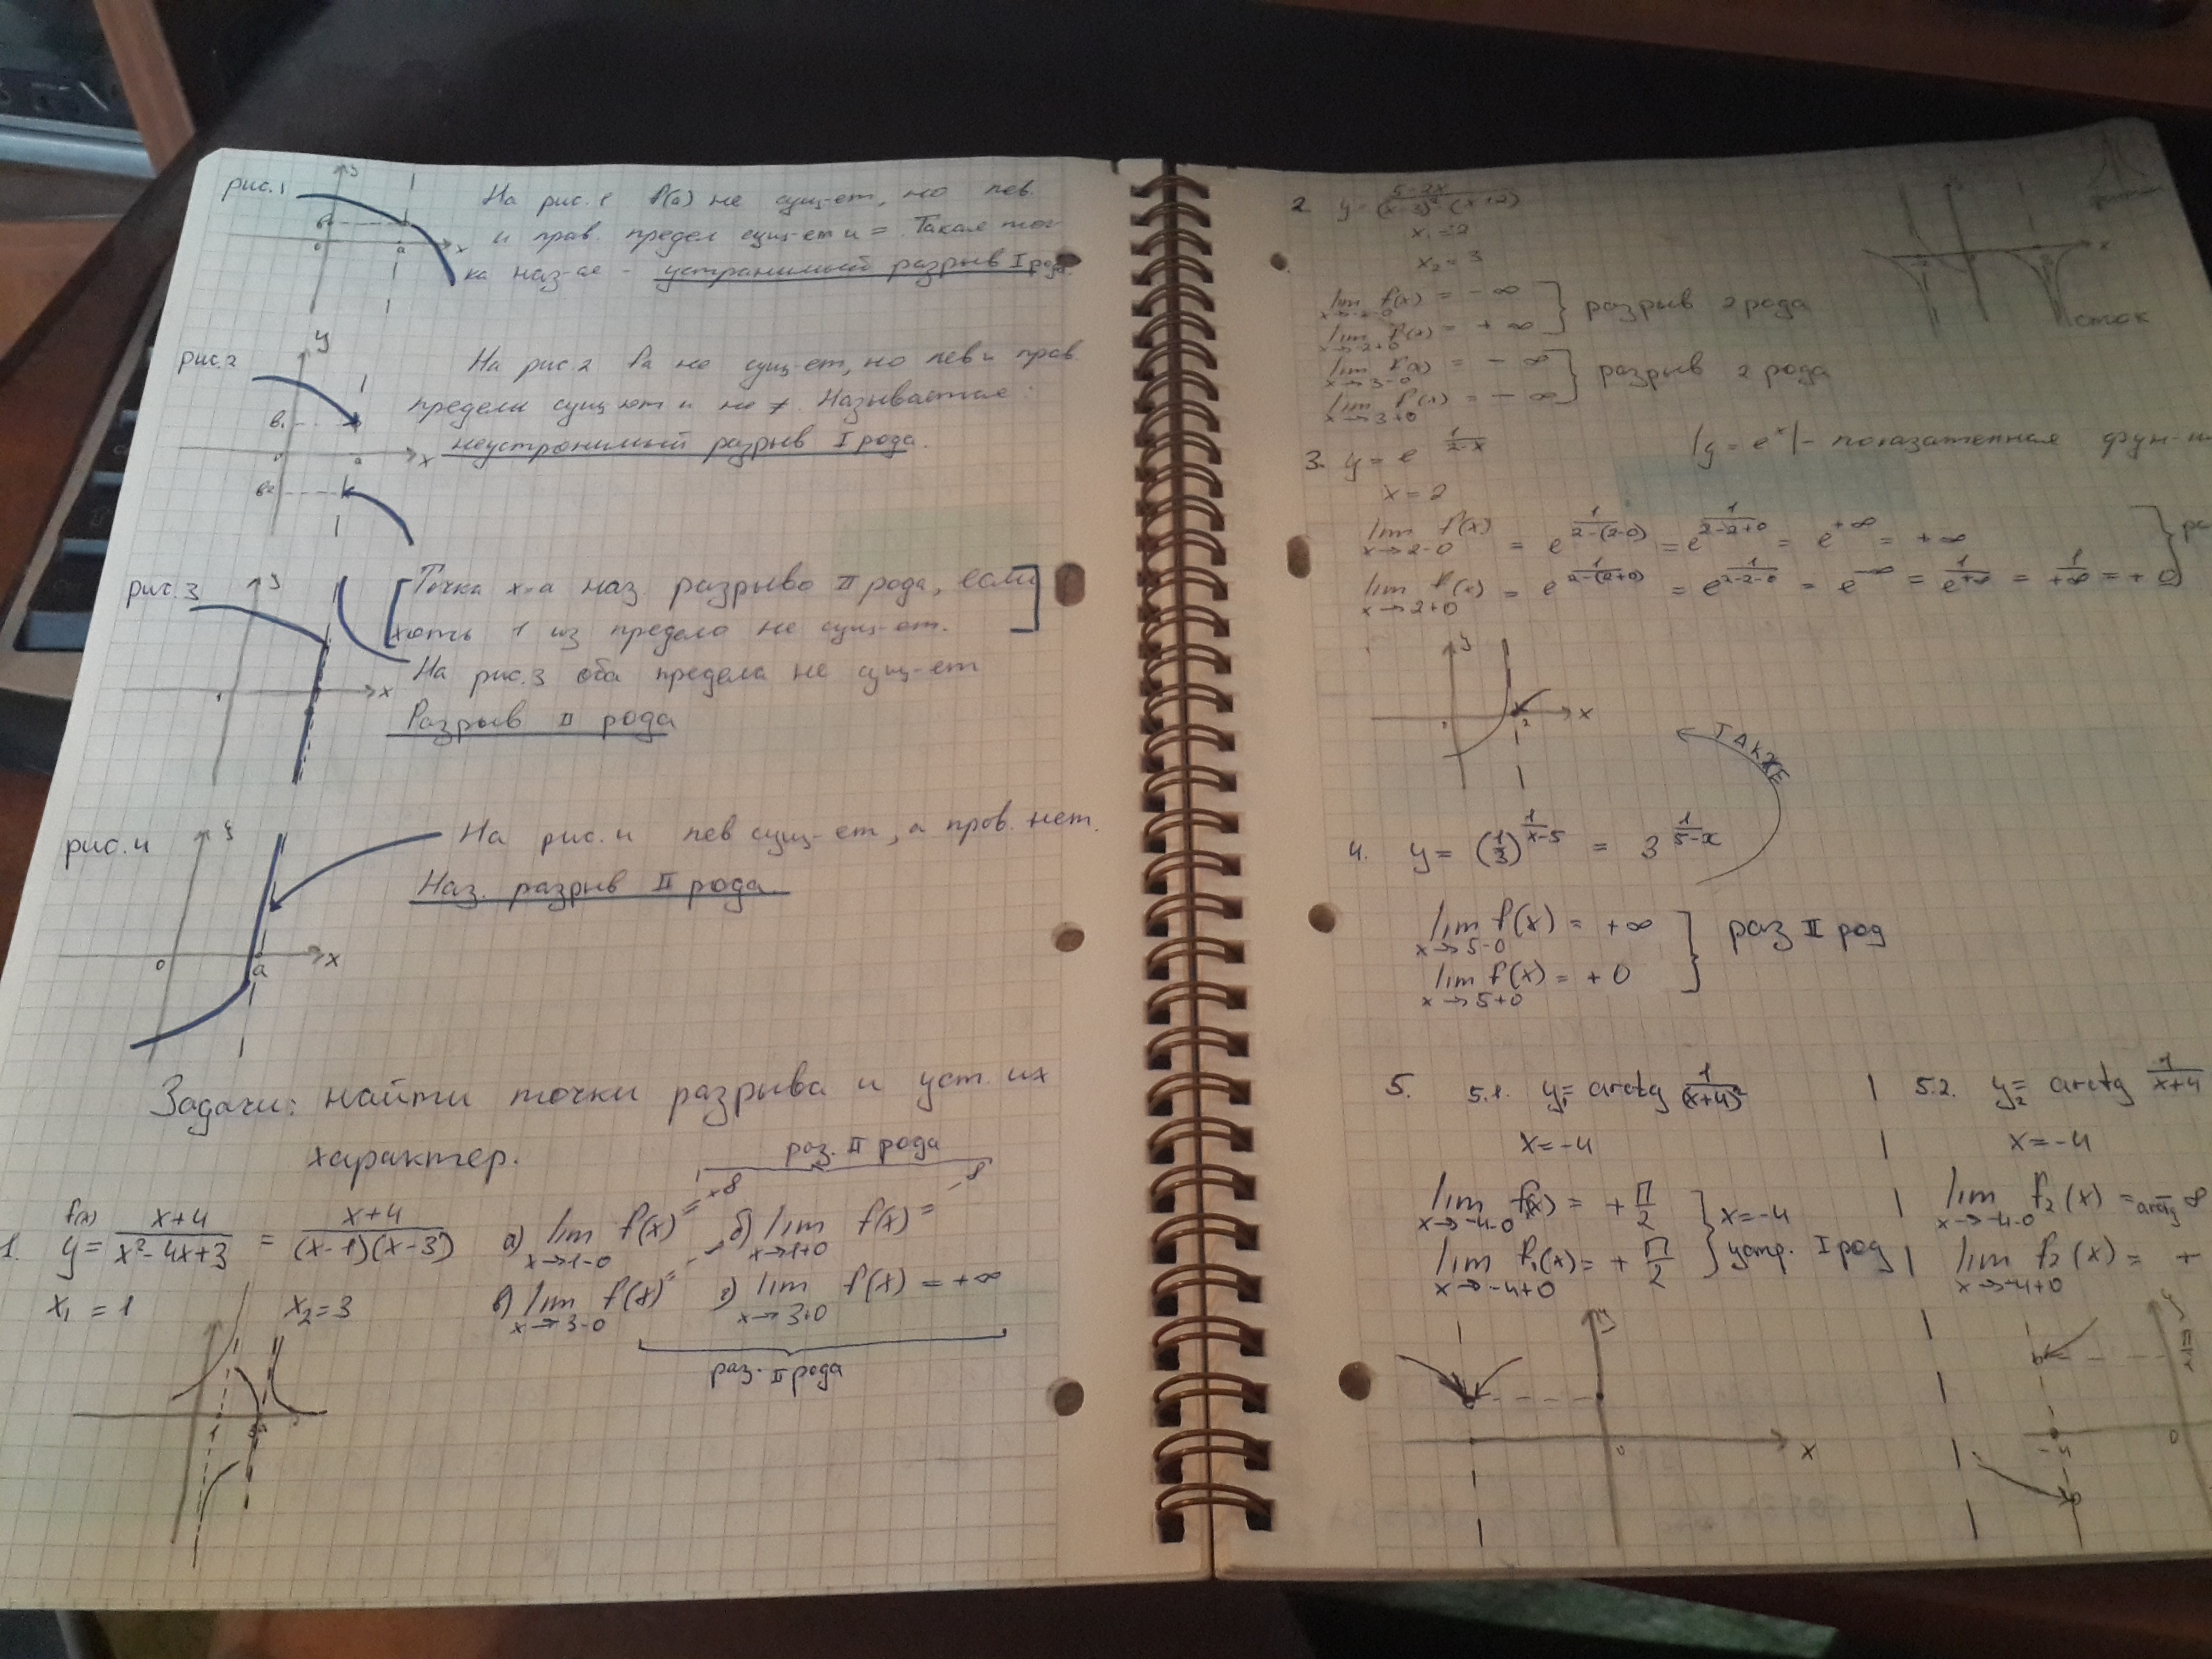 рис.1
На рис. 1 f(a) не сущ-ет, но лев.
и прав. предел сущ-ет и =. Такая точ-
ка наз-ае - устранимый разрыв I рода
рис.2
На рис.2 fa не сущ-ет, но лев и прав.
пределы сущ-ют и не ≠. Называется:
неустранимый разрыв I рода.
рис.3
Точка x=a наз. разрыво II рода, если
хоть 1 из предела не сущ-ет.
На рис.3 оба предела не сущ-ет
Разрыв II рода
рис.4
На рис.4 лев сущ-ет, а прав. нет.
Наз. разрыв II рода.
Задачи: найти точки разрыва и уст. их
характер.
раз. II рода
1. f(x) y = x+4 / x²-4x+3 = x+4 / (x-1)(x-3)
а) lim x→1-0 f(x) = +∞ б) lim x→1+0 f(x) = -∞
x₁ = 1 x₂=3
в) lim x→3-0 f(x) = -∞ г) lim x→3+0 f(x) = +∞
раз. II рода
2. y = 5-2x / (x-3)² (x+2)
x₂ = 3
lim f(x) = -∞
lim x→-2+0 f(x) = +∞
разрыв 2 рода
lim x→3-0 f(x) = -∞
lim x→3+0 f(x) = -∞
разрыв 2 рода
сток
3. y = e^(1/(2-x))
|y = e^x| - показательная фун-и
x = 2
lim x→2-0 f(x) = e^(1/(2-(2-0))) = e^(1/(2-2+0)) = e^(+∞) = +∞
lim x→2+0 f(x) = e^(1/(2-(2+0))) = e^(1/(2-2-0)) = e^(-∞) = 1/e^(+∞) = 1/+∞ = +0
ТАКЖЕ
4. y = (1/3)^(1/(x-5)) = 3^(1/(5-x))
lim x→5-0 f(x) = +∞
lim x→5+0 f(x) = +0
раз II род
5. 5.1. y₁= arctg 1/(x+4)²
x=-4
lim x→-4-0 f(x) = +π/2
lim x→-4+0 f₁(x) = +π/2
x=-4
устр. I род
5.2. y₂= arctg 1/x+4
x=-4
lim x→-4-0 f₂(x) = arctg ∞
lim x→-4+0 f₂(x) = +